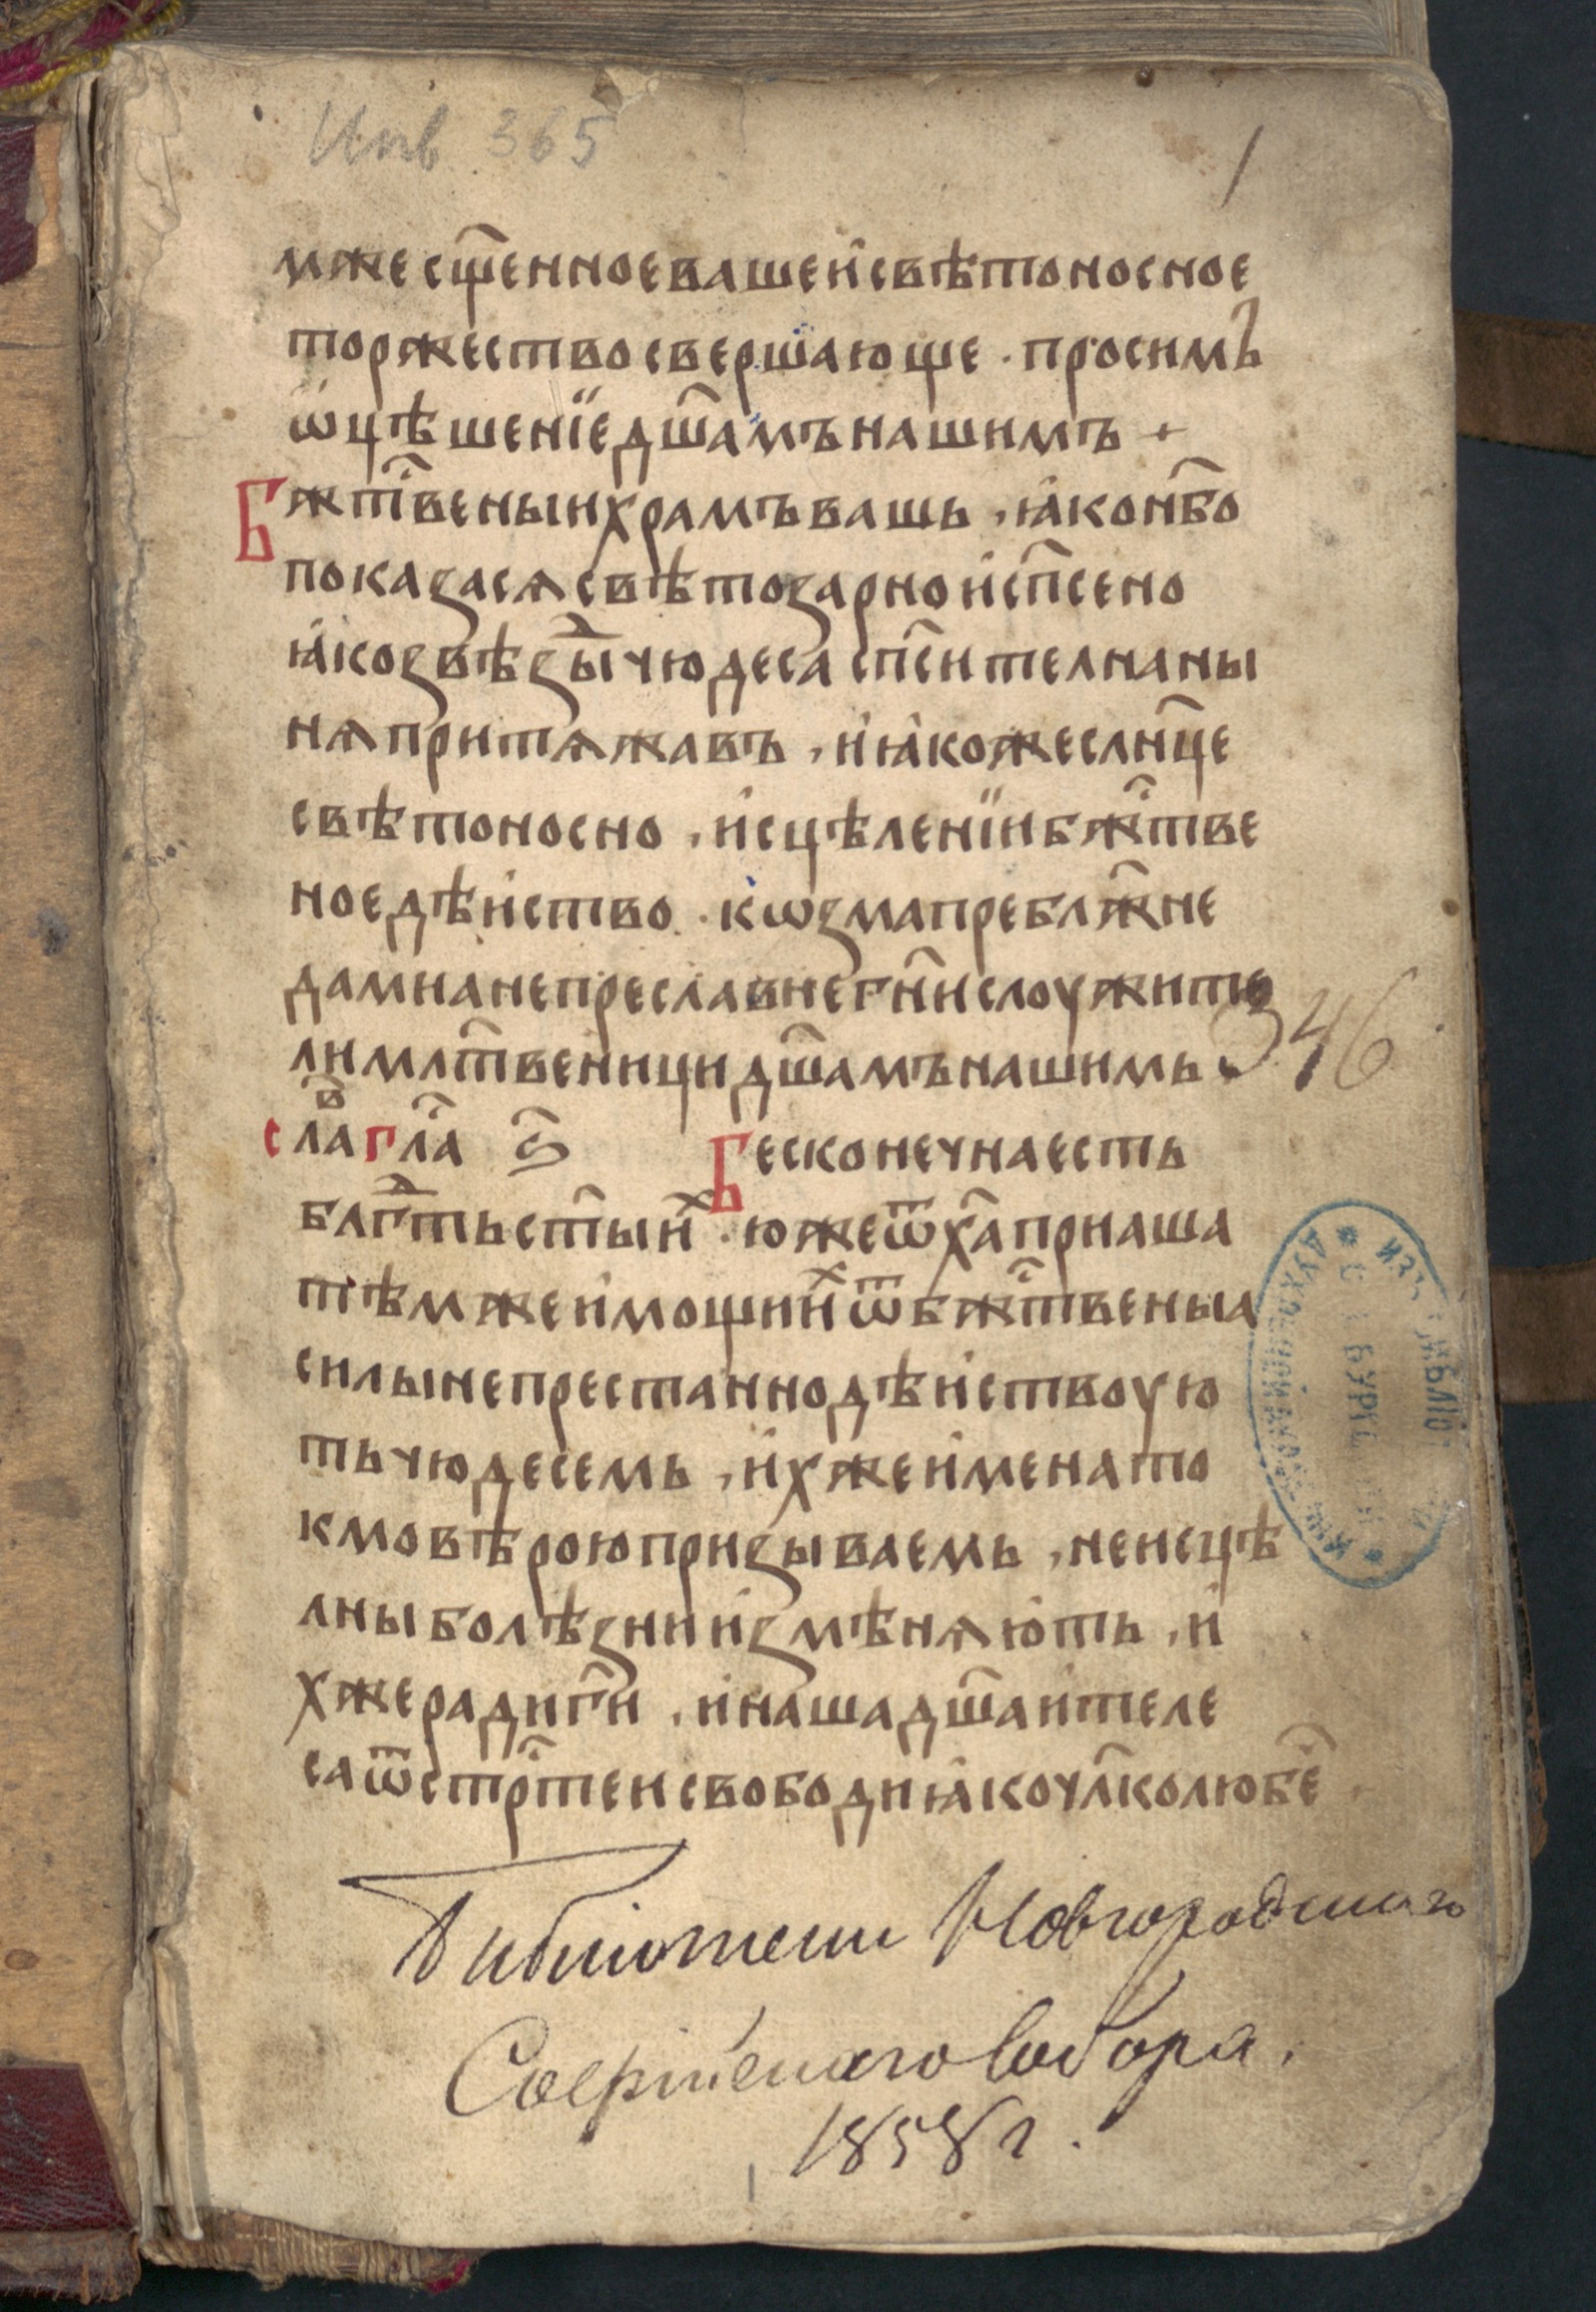 Инв 365
1
мжесщ҃енноевашеисвѣтоносное
торжествосвершающе · просимъ
ѿцѣшенїедш҃амънашимъ +
Бжт҃веныихрамъвашь , ꙗконб҃о
показасѧсвѣтозарноисп҃сено
ꙗкозвѣзды҃чюдесасп҃ителнаны
нѧпритѧжавъ , иꙗкожеслнц҃е
свѣтоносно , исцѣленїибжт҃ве
ноедѣиство · кѡзмапреблж҃не
дамианепреславнегн҃ислоужите
лимлт҃веницидш҃амънашимь
сла҃вгла҃ ѕ҃ Бесконечнаесть
блгд҃тьст҃ых · южеѿх҃априаша
тѣмжеимощиихѿбжт҃веныа
силынепрестаннодѣиствоую
тьчюдесемь , ихжеименато
кмовѣроюпризываемь , неисцѣ
лныболѣзнииизмѣнѧють , и
хжерадиги҃ , инашадш҃аителе
саѿстрт҃еисвободиꙗкочл҃колюбе҃
346
Библіотеки Новгородскаго
Софійскаго Собора.
1858 г.